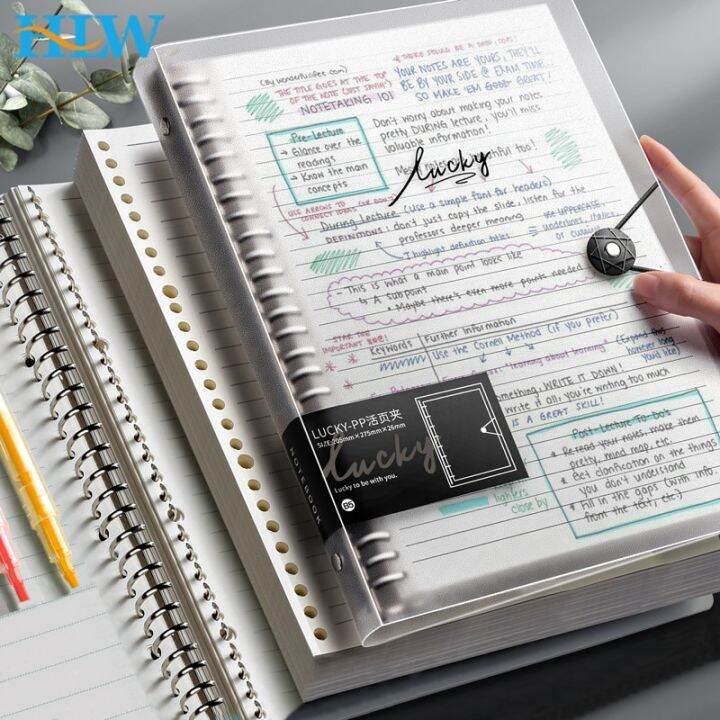 HLW
(By wonderfuliee.com)
THE TITLE GOES AT THE TOP
OF THE NOTE (JUST SAYIN')
NOTETAKING 101
* THERE SHOULD BE A DATE, TOO!
YOUR NOTES ARE YOURS, THEY'LL
BE BY YOUR SIDE @ EXAM TIME...
SO MAKE 'EM GOOD GREAT!
Pre-Lecture
→ Glance over the
readings
→ Know the main
concepts
Don't worry about making your notes
pretty DURING lecture, you'll miss
valuable information!
too!
lucky
USE ARROWS TO
CONNECT IDEAS
During Lecture (use a simple font for headers)
DEFINITIONS: don't just copy the slide, listen for the
professors deeper meaning
I highlight definition titles
USE UPPERCASE,
underlines, italics,
or cursive
- This is what a main point looks like
↳ A subpoint
* Maybe there's even more points needed
STAR THE
IMPORTANT BOX!
Keywords
Further Information
Use the Cornell Method (if you prefer)
"learning about learning"
(Expand this
however long
you'd like)
something, WRITE IT DOWN!
write it all, you're writing too much
IS A GREAT SKILL!
Post-Lecture To-Do's
* Re-read your notes, make them
pretty, mind map, etc.
* Get clarification on the things
you don't understand
* Fill in the gaps (with info
from the text, etc)
close by
LUCKY-PP活页夹
SIZE:205mm×275mm×26mm
lucky
Lucky to be with you.
B5
NOTEBOOK